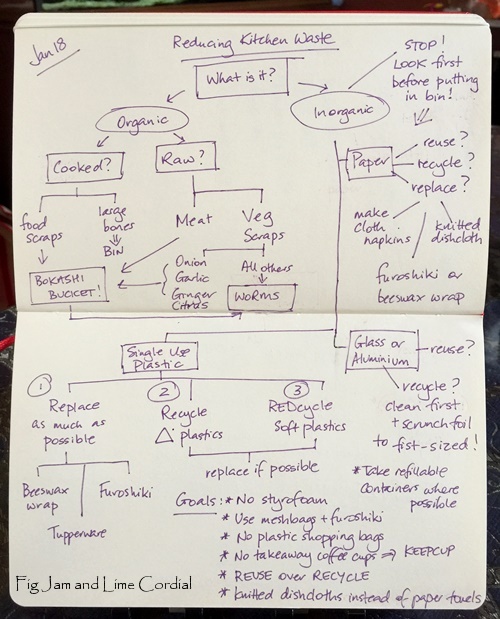 Jan 18
Reducing Kitchen Waste
What is it?
STOP!
LOOK first
before putting
in bin!
Organic
Inorganic
Cooked?
Raw?
Paper
reuse?
recycle?
replace?
food
scraps
large
bones
BIN
Meat
Veg
Scraps
make
cloth
napkins
knitted
dishcloth
furoshiki or
beeswax wrap
BOKASHI
BUCKET!
Onion
Garlic
Ginger
Citrus
All others
WORMS
Single Use
Plastic
Glass or
Aluminium
reuse?
recycle?
clean first
+ scrunch foil
to fist-sized!
1
Replace
as much as
possible
2
Recycle
plastics
3
REDcycle
Soft plastics
replace if possible
Beeswax
wrap
Furoshiki
Tupperware
* Take refillable
containers where
possible
Goals: * No styrofoam
* Use meshbags + furoshiki
* No plastic shopping bags
* No takeaway coffee cups ⇒ KEEPCUP
* REUSE over RECYCLE
* knitted dishcloths instead of paper towels
Fig Jam and Lime Cordial